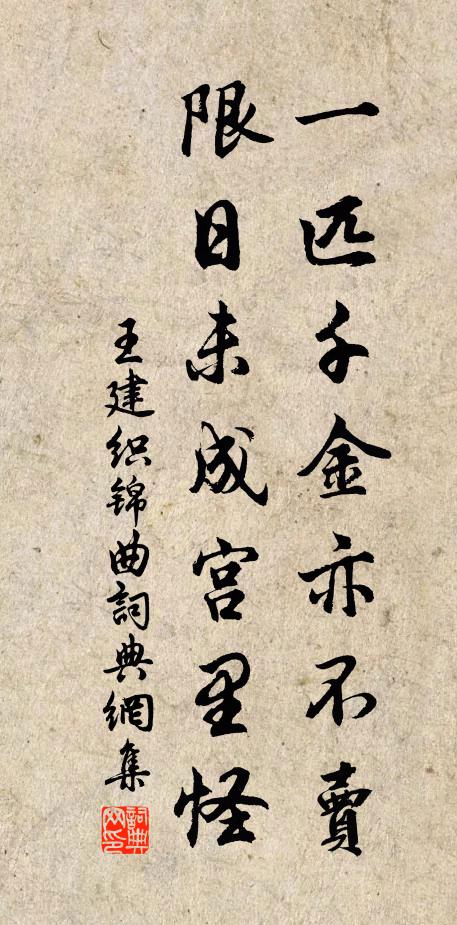 一匹千金亦不賣
限日未成宫里怪
王建织锦曲詞典網集
詞典网印